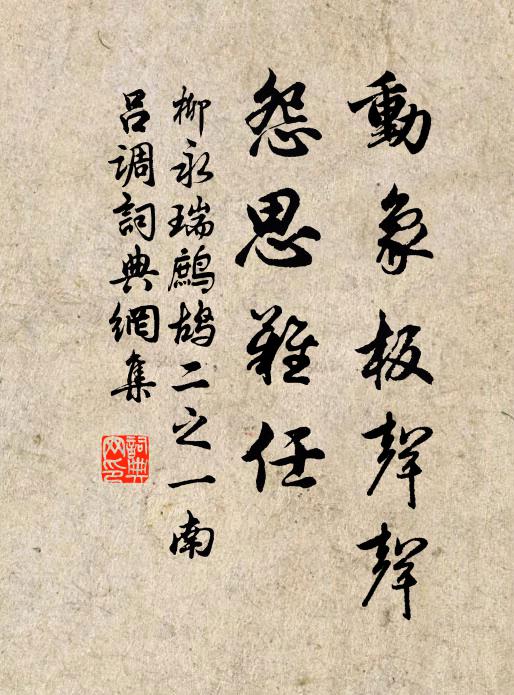 動象板聲聲
怨思難任
柳永瑞鷓鴣二之一南
呂調詞典網集
詞典網印